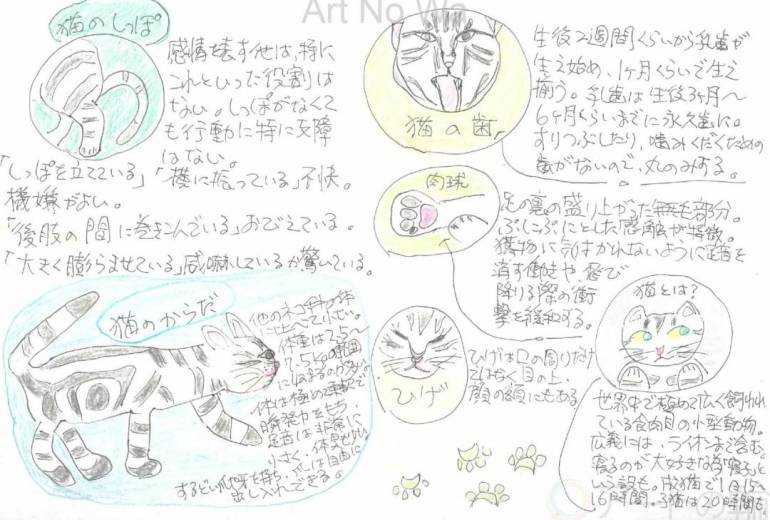 Art No Wa
猫のしっぽ
感情を表す他は、特に
これといった役割は
ない。しっぽがなくて
も行動に特に支障
はない。
「しっぽを立てている」
機嫌がよい。
「横に振っている」不快。
「後肢の間に巻きこんでいる」おびえている。
「大きく膨らませている」威嚇しているか驚いている。
猫の歯
生後2週間くらいから乳歯が
生え始め、1ヶ月くらいで生え
揃う。乳歯は生後3ヶ月〜
6ヶ月くらいまでに永久歯に。
すりつぶしたり、噛みくだくための
歯がないので、丸のみする。
肉球
足の裏の盛り上がった無毛部分。
ぷにぷにとした感触が特徴。
獲物に気付かれないように足音を
消す働きや、
降りる際の衝
撃を緩和する。
猫のからだ
他のネコ科の
に比べて小さい。
体重は2.5〜
7.5kgの範囲
におさまるのが多い。
体は極めて柔軟で
瞬発力をもち、
足音は非常に
小さく、体臭も少ない。
するどい爪を持ち、爪は自由に
出し入れできる。
ひげ
ひげは口の周りだけ
ではなく目の上、
顔の頬にもある
猫とは?
世界中で極めて広く飼われ
ている食肉目の小型動物。
広義には、ライオンまで含む。
寝るのが大好きな為「寝子」と
いう説も。成猫で1日15〜
16時間。子猫は20時間も。